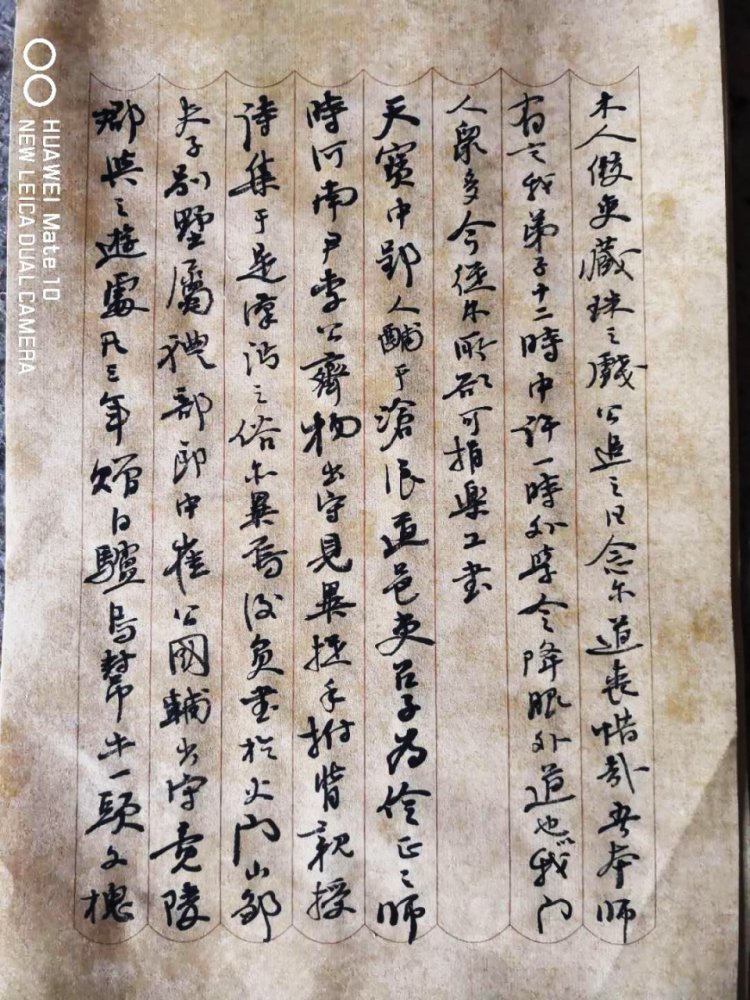 木人假吏藏珠之戲公追之曰念尔道喪惜哉吾本師
有言我弟子十二時中許一時外學令降服外道也我門
人眾多今從尔所欲可捐樂工書
天寶中郢人酺于滄浪道邑吏召子為伶正之師
時河南尹李公齊物出守見異捉手拊背親授
詩集于是漢沔之俗亦異焉後負書於火門山鄒
夫子別墅屬禮部郎中崔公國輔出守竟陵
郡與之遊處凡三年贈白驢烏幫牛一頭文槐
HUAWEI Mate 10
NEW LEICA DUAL CAMERA